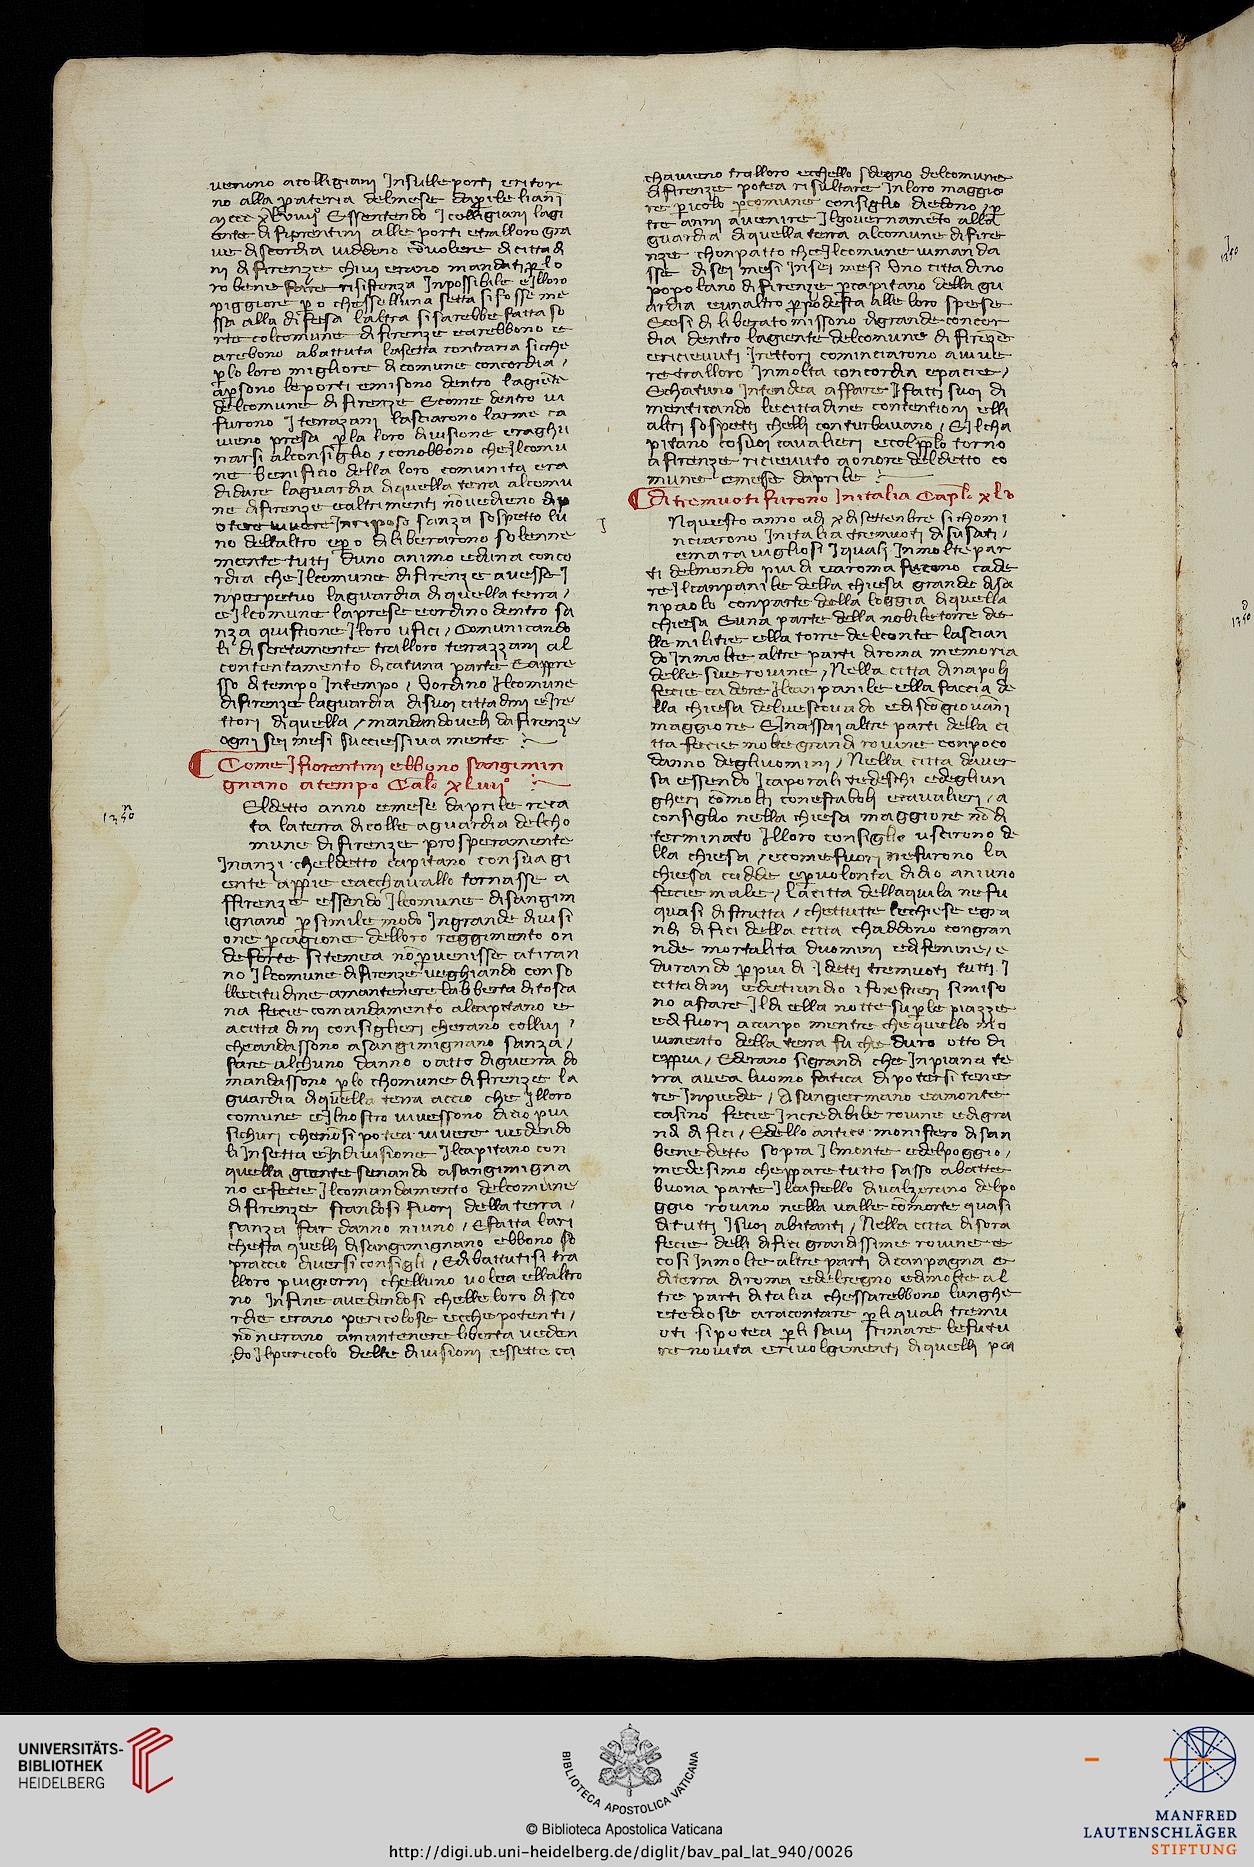 venono a colligiani Insulle porti eritori
no alla pateria del mese daprile lianni
mccc xlviiii° Essentendo I colligiani lagi
ente di fiorentini alle porti etralloro gra
ve discordia viddono covolere di cittadi
ni di firenze chivi erano mandati plo
ro bene fare risistenza Inpossibile eilloro
piggiore po chesselluna setta sifosse me
ssa alla difesa laltra sisarebbe fatta fo
rte colcomune di firenze earebbono e
arebono abattuta lasetta contraria siche
plo loro migliore di comune concordia /
apsono leporti emisono dentro lagiente
delcomune di firenze Ecome dentro vi
furono I terrazani lasciarono larme ca
vieno presa pla loro divisione eraghu
narsi alconsiglio / conobbono che Ilcomu
ne benificio della loro comunita era
didare laguardia diquella terra alcomu
ne difirenze ealtrimenti novedieno di p
otere vivere In riposo sanza sospetto lu
no dellaltro epo diliberarono solenne
mente tutti duno animo eduna conco
rdia che Ilcomune di firenze avesse I
nperpetuo laguardia di quella terra /
eIlcomune laprese eordino dentro sa
nza quistione Iloro ufici / Comunicando
li discretamente tralloro terrazzani al
contentamento dicatuna parte Eappre
sso di tempo Intempo / Vordino Ilcomune
difirenze laguardia disuoi cittadini eIre
ttori diquella / mandandoveli da firenze
ogni sei mesi successiva mente
Come I fiorentini ebbono sangimin
gnano a tempo Capo xLiiii°
1350
Eldetto anno emese daprile reca
ta laterra dicolle aguardia delcho
mune di firenze prosperamente
Inanzi cheldetto capitano consuagi
ente appie eacchavallo tornasse a
ffirenze essendo Ilcomune disangim
ignano psimile modo Ingrande divisi
one pcagione delloro reggimento on
deforte sitemea no pvenisse atiran
no Ilcomune difirenze veghiando conso
llecitudine amantenere labberta ditosca
na fecie comandamento alcapitano e
acittadini consiglieri cherano collui /
cheandassono asangimignano sanza /
fare alchuno danno o atto di guerra do
mandassono plo chomune difirenze la
guardia diquella terra accio che Illoro
comune eIlnostro vivessono di cio piu
sichuri chenonsi potea vivere vedendo
li Insetta eIndivisione Ilcapitano con
quella giente senando asangimigna
no efecie Ilcomandamento delcomune
di firenze standosi fuori della terra /
sanza far danno niuno / Efatta lari
chesta quelli disangimignano ebbono so
praccio diversi consigli / Edibattutisi tra
lloro piugiorni chelluno volea ellaltro
no Infine avedendosi chelle loro disco
rdie erano pericolose ecche potenti /
nonerano amantenere liberta veden
do Ilpericolo delle divisioni essette ca
chavieno tralloro ecchello sdegno delcomune
difirenze potea risultare Inloro maggio
re picolo pcomune consiglio diedono / p
tre anni avenire Ilgovernameto alla
guardia di quella terra alcomune di fire
nze chonpatto che Ilcomune vimanda
sse disei mesi Insei mesi Uno cittadino
popolano di firenze pcapitano della gu
ardia eunaltro ppodesta alle loro spese
Ecosi diliberato missono digrande concor
dia dentro lagiente delcomune di firenze
ericievuti Irettori cominciarono avive
re tralloro Inmolta concordia epacie /
Echatuno Intendea affare Ifatti suoi di
menticando lecittadine contentioni elli
altri sospetti chelli conturbavano / Eilcha
pitano cosuoi cavalieri ecolpplo torno
afirenze ricievuto aonore deldetto co
mune emese daprile
Di tremuoti furono Initalia Caplo xLv
I
Nquesto anno adi x di settenbre sichomi
nciarono Initalia tremuoti disusati /
emaravigliosi Iquali Inmolte par
ti delmondo piu di earoma fecono cade
re Ilcanpanile della chiesa grande disa
npaolo conparte della loggia di quella
chiesa Euna parte della nobile torre de
lle militie ella torre delconte lascian
do Inmolte altre parti diroma memoria
delle sue rovine / Nella citta dinapoli
fecie cadere Ilcanpanile ella faccia de
lla chiesa delvescovado edisco giovani
maggiore EInassai altre parti della ci
tta fecie molte grandi rovine conpoco
danno deglivomini / Nella citta daver
sa essendo Icaporali tedeschi edegliun
gheri comolti conestaboli ecavalieri / a
consiglio nella chiesa maggiore no di
terminato Illoro consiglio uscirono de
lla chiesa / ecomefuori nefurono la
chiesa cadde epvolonta didio aniuno
fecie male / Lacitta dellaquila nefu
quasi distrutta / chettutte lechiese egra
ndi difici della citta chaddono congran
nde mortalita duomini edifemine / e
durando ppiu di Idetti tremuoti tutti I
cittadini edetiandio iforestieri simiso
no astare Ildi ella notte suple piazze
edifuori acanpo mentre che quello mo
vimento della terra fu che duro otto di
eppiu / Ederano sigrandi che Inpiana te
rra avea luomo fatica di potersi tene
re Inpiede / Asangiermano eamonte
casino fecie Incredibile rovine edigra
ndi difici / Edello antico monistero disan
benedetto sopra Ilmonte edelpoggio /
medesimo cheppare tutto sasso abatte
buona parte Ilcastello divalzerano delpo
ggio rovino nella valle comorte quasi
di tutti Isuoi abitanti / Nella citta disora
fecie delli difici grandissime rovine e
cosi Inmolte altre parti dicanpagna e
diterra diroma edelregno edimolte al
tre parti ditalia chessarebbono lunghe
etediose araccontare pliquali tremu
oti sipotea pli savi stimare lefutu
re novita erivolgimenti di quelli pae
1350
1350
UNIVERSITÄTS-
BIBLIOTHEK
HEIDELBERG
BIBLIOTECA APOSTOLICA VATICANA
© Biblioteca Apostolica Vaticana
http://digi.ub.uni-heidelberg.de/diglit/bav_pal_lat_940/0026
MANFRED
LAUTENSCHLÄGER
STIFTUNG